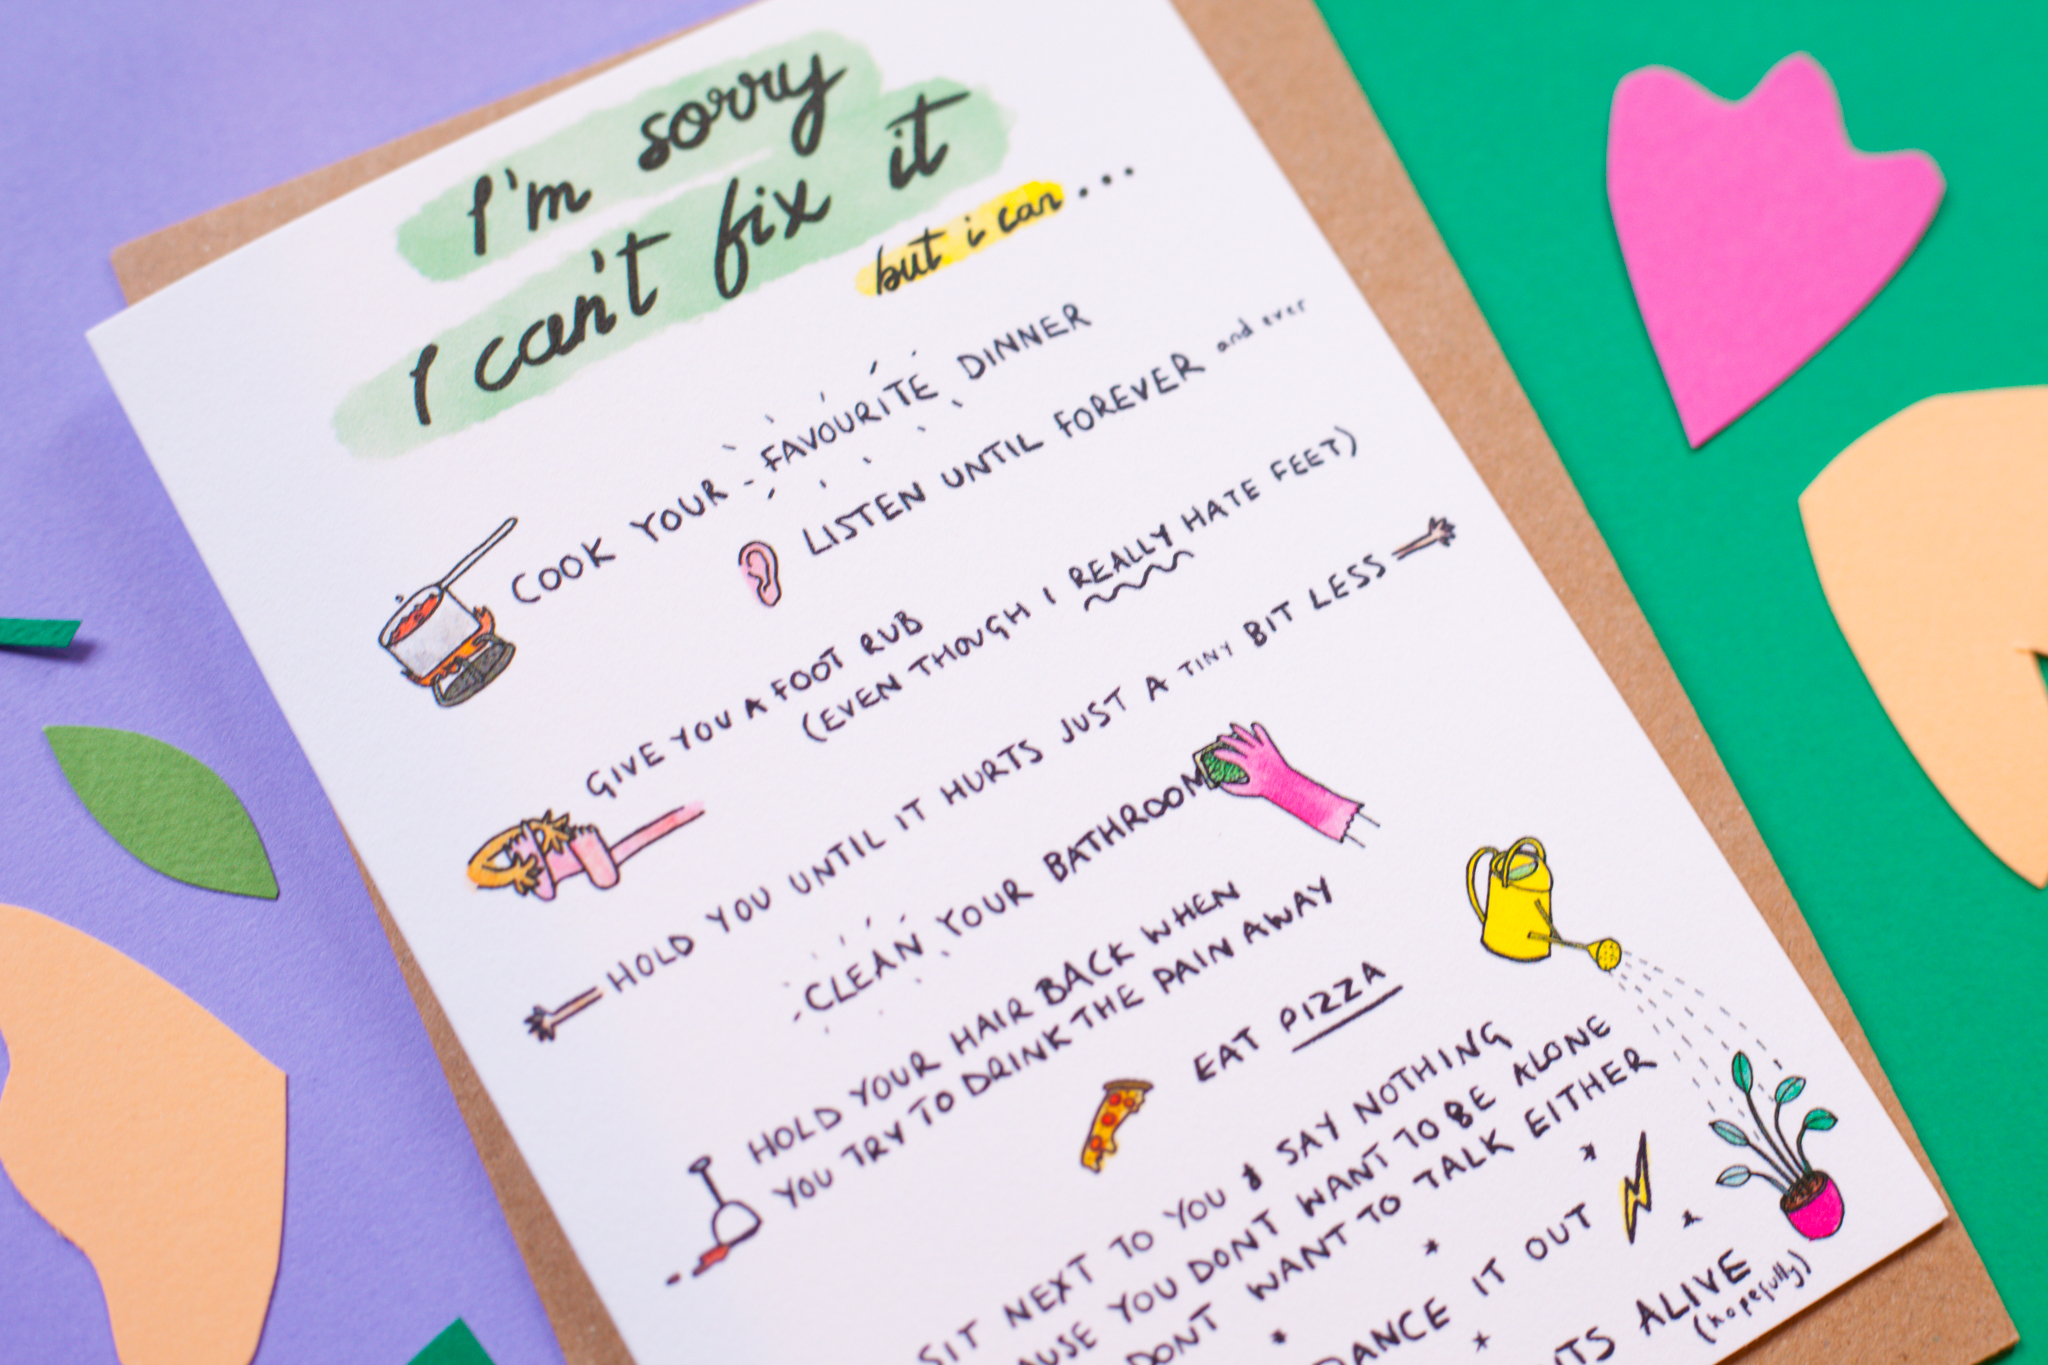 I'm sorry
I can't fix it
but i can...
COOK YOUR FAVOURITE DINNER
LISTEN UNTIL FOREVER and ever
GIVE YOU A FOOT RUB
(EVEN THOUGH I REALLY HATE FEET)
HOLD YOU UNTIL IT HURTS JUST A TINY BIT LESS
CLEAN YOUR BATHROOM
HOLD YOUR HAIR BACK WHEN
YOU TRY TO DRINK THE PAIN AWAY
EAT PIZZA
SIT NEXT TO YOU & SAY NOTHING
YOU DONT WANT TO BE ALONE
DONT WANT TO TALK EITHER
DANCE IT OUT
ALIVE
(hopefully)